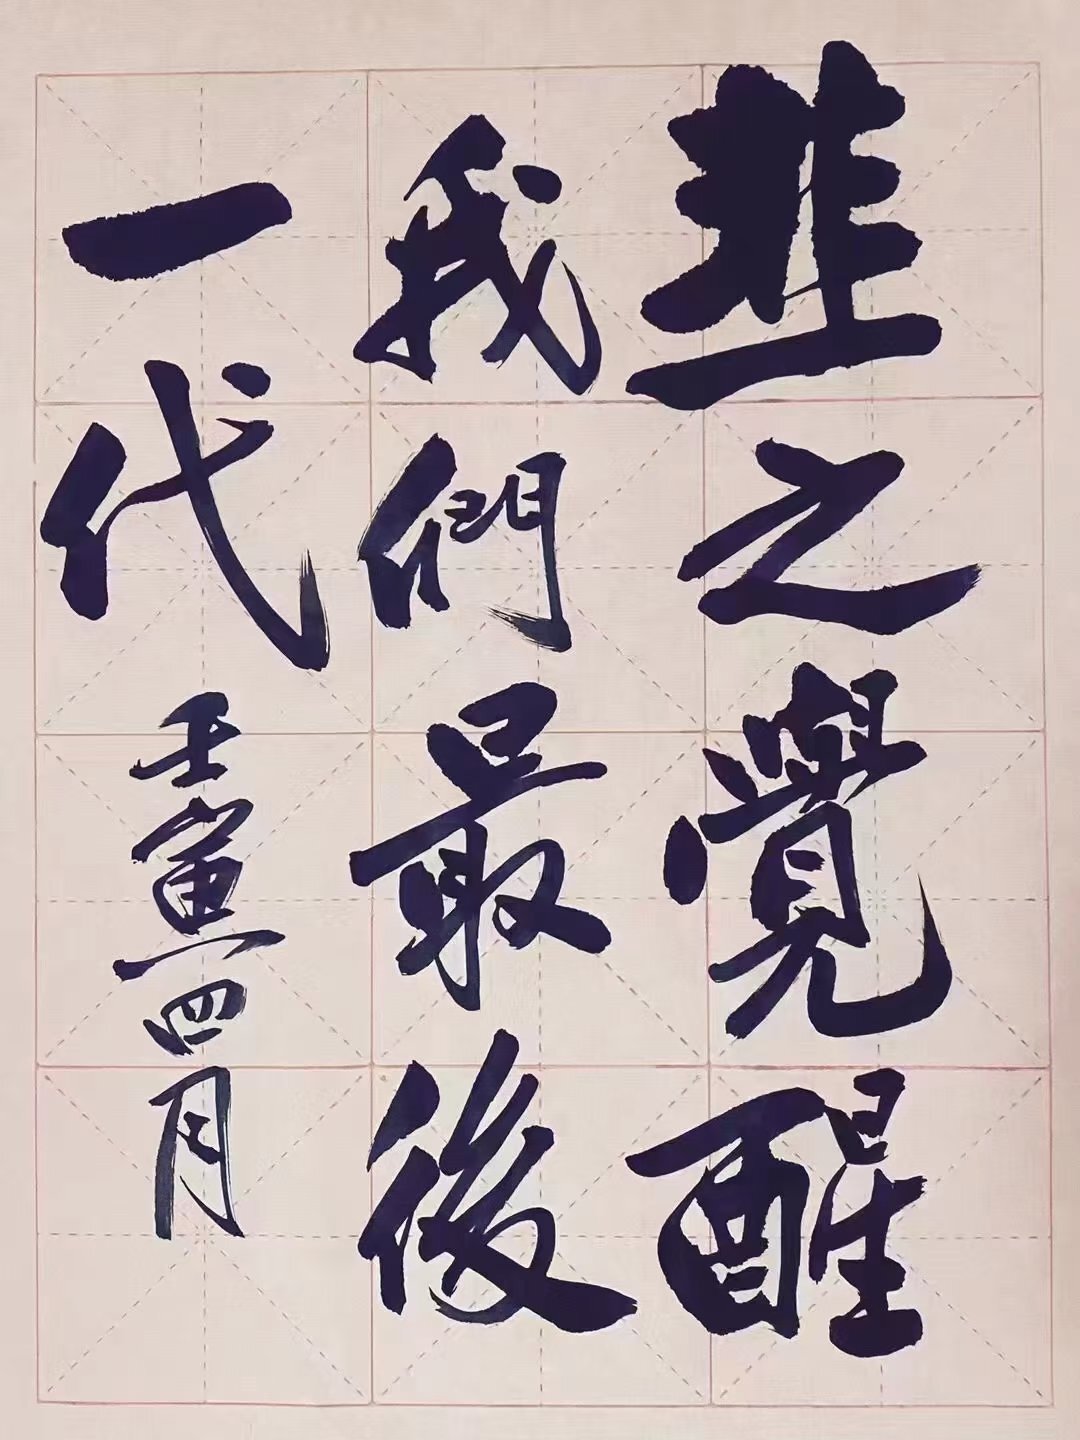 韭之覺醒
我們最後
一代
壬寅四月